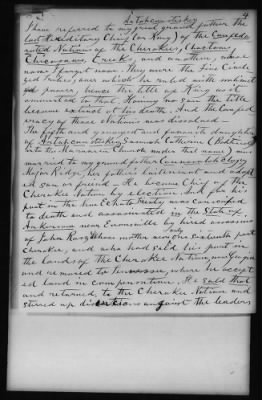 Astahcanstuskey
4
I have referred to my grand father the
last Hereditary (King (or Key) of the Confede
rated Nations of the Cherokees, Choctaws,
Chicasaws, Creeks, and another, whose
name I forget now. They were the five Civil
ized tribes, over which he ruled with unlimit
ed power, hence the title of King as it
amounted to that. Having no son the title
became extinct at his death. And the Confed
eracy of those Nations was dissolved—
The fifth and youngest and favourite daughter
of Susannah Catherine (Baptized
into the Moravian Church under that name) was
married to my grand father
Major Ridge, her father's lieutenant and adopt
ed son or friend. He became Chief of the
Cherokee Nation by election. And for his
part in the New Echota Treaty was consigned
to death and assassinated in the State of
Arkansas near Evansville by hired assassins
of John Ross, whose mother was one sixteenth part
Cherokee, and who had sold his part in
the lands of the Cherokee Nation, in Georgia
and removed to Tennessee, where he accept
ed land in compensation. He sold that
and returned, to the Cherokee Nation and
stirred up dissention against the leaders